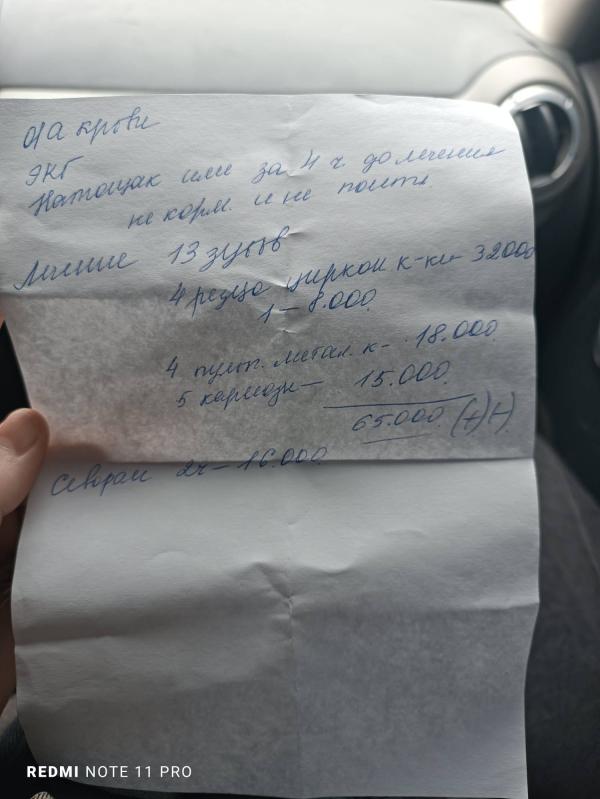 О/А крови
ЭКГ
Натощак или за 4 ч. до лечения
не корм. и не поить
Лечение 13 зубов
4 резца циркон к-ки 32000
1 – 8.000
4 пульп. метал. к- 18.000
5 кариозн – 15.000
65.000 (+)(-)
Севоран 2ч – 16.000
REDMI NOTE 11 PRO